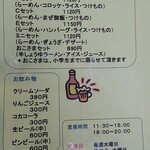 (らーめん・コロッケ・ライス・つけもの)
Cセット 1120円
(らーめん・まぜ御飯・つけもの)
Dセット 1150円
(らーめん・ハンバーグ・ライス・つけもの)
Eセット 1150円
(らーめん・ぎょうざ・デザート)
おこさまセット 890円
(半しょうゆラーメン・アイス・ジュース)
おこさまセットは、小学生までに限らせて頂きます
お飲み物
クリームソーダ 380円
りんごジュース 300円
コカコーラ 300円
生ビール(中) 600円
ビンビール(中) 600円
営業時間
11:30~15:00
18:00~20:00
定休日
毎週木曜日